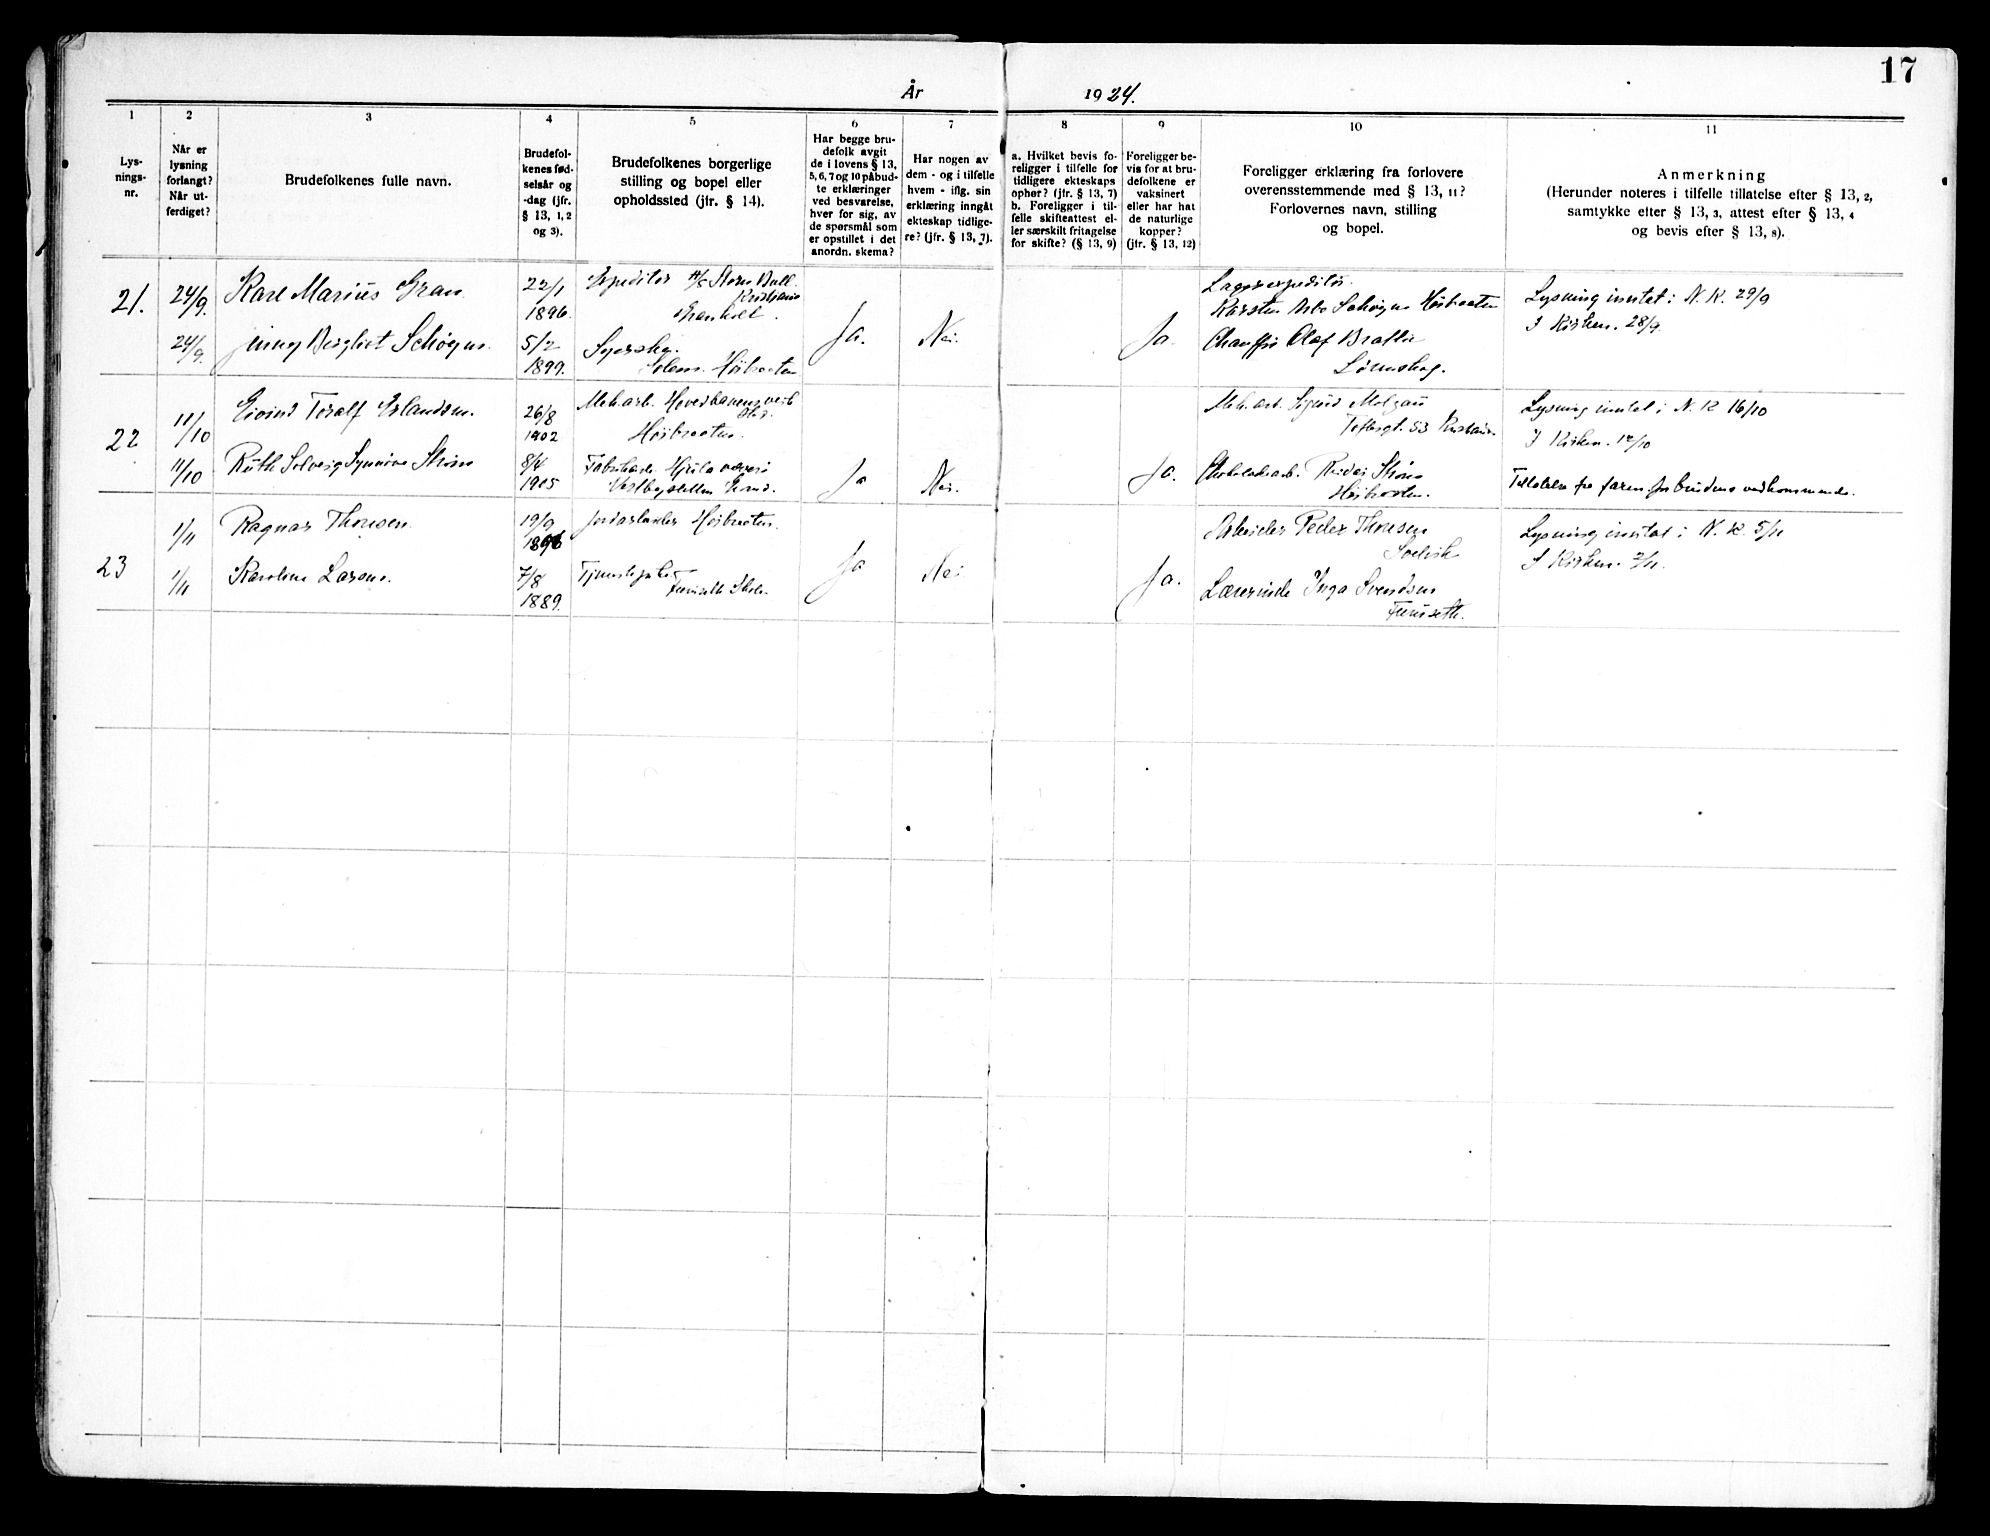 17
År 1924.
1 2 3 4 5 6 7 8 9 10 11
Lys-
nings-
nr.
Når er
lysning
forlangt?
Når ut-
ferdiget?
Brudefolkenes fulle navn.
Brudefol-
kenes fød-
selsår og
-dag (jfr.
§ 13, 1, 2
og 3).
Brudefolkenes borgerlige
stilling og bopel eller
opholdssted (jfr. § 14).
Har begge bru-
defolk avgit
de i lovens § 13,
5, 6, 7 og 10 påbud-
te erklæringer
ved besvarelse,
hver for sig, av
de spørsmål som
er opstillet i det
anordn. skema?
Har nogen av
dem - og i tilfelle
hvem - iflg. sin
erklæring inngåt
ekteskap tidlige-
re? (jfr. § 13, 7).
a. Hvilket bevis fo-
religger i tilfelle for
tidligere ekteskaps
ophør? (jfr. § 13, 7)
b. Foreligger i til-
felle skifteattest el-
ler særskilt fritagelse
for skifte? (§ 13, 9)
Foreligger be-
vis for at bru-
defolkene er
vaksinert
eller har hat
de naturlige
kopper?
(jfr. § 13, 12)
Foreligger erklæring fra forlovere
overensstemmende med § 13, 11?
Forlovernes navn, stilling
og bopel.
Anmerkning
(Herunder noteres i tilfelle tillatelse efter § 13, 2,
samtykke efter § 13, 3, attest efter § 13, 4
og bevis efter § 13, 8).
21.
24/9.
Karl Marius Gran
22/1
1896.
Expeditør A/S Steen
Kristiania
Granholt.
24/9.
Bergliot Schøyen
5/2
1899.
Syerske.
Høibraaten
Ja.
Nei.
Ja.
Lagerexpeditør
Karsten Arbo Schøyen Høibraaten
Chauffør Olaf
Lørenskog.
Lysning inntat i N. K. 29/9
I Kirken. 28/9.
22
11/10
Eivind Toralf Erlandsen.
26/8
1902
Mek.arb.
Høibraaten.
11/10
Ruth Solveig Synnøve Strøm
8/4
1905
Fabrikarb. Hjula væveri
Ja
Nei.
Ja.
Mek. arb. Sigurd
Toftesgt. 53 Kristiania
Chokoladearb. Reidar Strøm
Høibraaten.
Lysning inntat i N. K 16/10
I Kirken. 12/10
Tillatelse fra faren for brudens vedkommende.
23
1/11
Ragnar Thoresen.
19/9
1896
Jordarbeider Høibraaten.
1/11
Karoline Larsen.
7/8
1889.
Tjenestepike
Furuseth Skole.
Ja
Nei
Ja.
Arbeider Peder Thoresen
Lærerinde Inga Svendsen
Furuseth.
Lysning inntat i N. K. 5/11
I Kirken. 2/11.